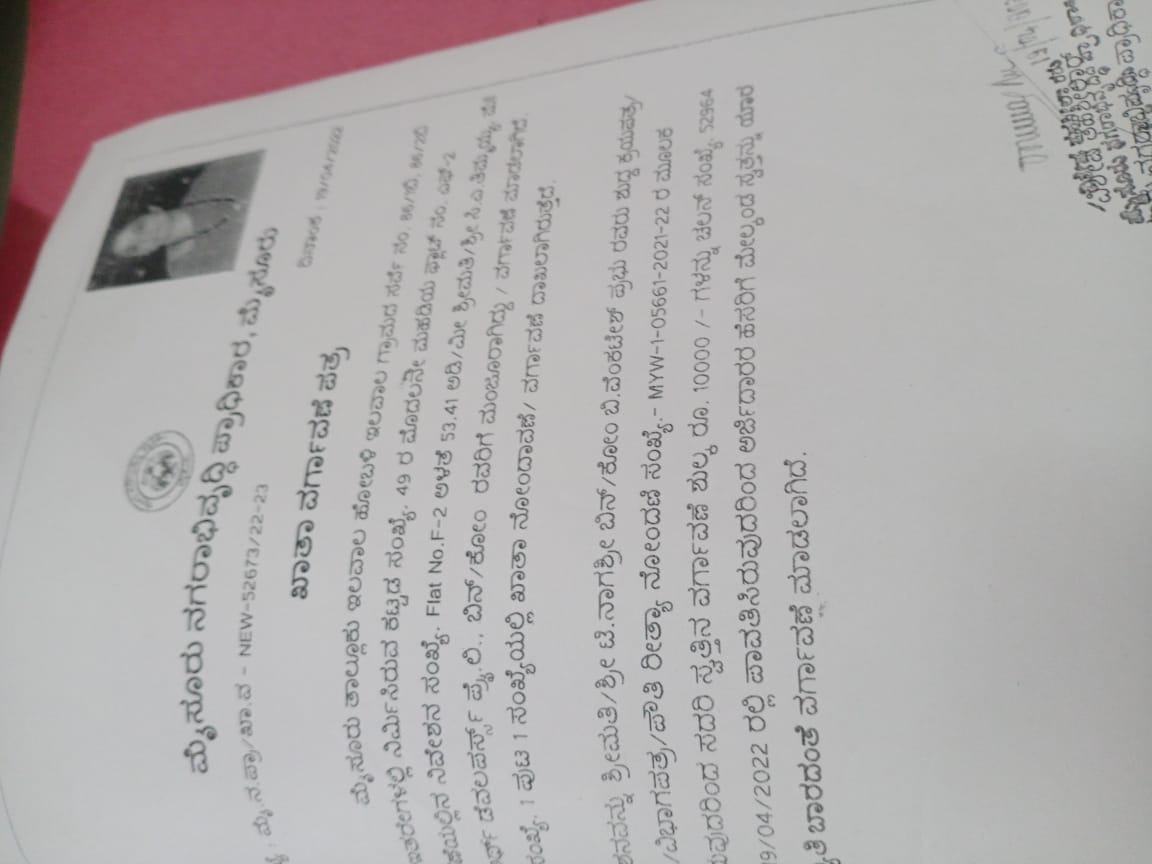 ಮೈಸೂರು ನಗರಾಭಿವೃದ್ಧಿ ಪ್ರಾಧಿಕಾರ, ಮೈಸೂರು
: ಮೈ.ನ.ಪ್ರಾ/ಖಾ.ವ - NEW-52673/22-23
ದಿನಾಂಕ : 19/04/2022
ಖಾತಾ ವರ್ಗಾವಣೆ ಪತ್ರ
ಮೈಸೂರು ತಾಲ್ಲೂಕು ಇಲವಾಲ ಹೋಬಳಿ ಇಲವಾಲ ಗ್ರಾಮದ ಸರ್ವೆ ನಂ. 86/1ಬಿ, 86/2ಬಿ
ಇತರೇಗಳಲ್ಲಿ ನಿರ್ಮಿಸಿರುವ ಕಟ್ಟಡ ಸಂಖ್ಯೆ. 49 ರ ಮೊದಲನೇ ಮಹಡಿಯ ಫ್ಲಾಟ್ ನಂ. ಎಫ್-2
ನಿವೇಶನ ಸಂಖ್ಯೆ. Flat No.F-2 ಅಳತೆ 53.41 ಅಡಿ/ಮೀ ಶ್ರೀಮತಿ/ಶ್ರೀ ಸಿ.ಎ.ತಿಮ್ಮಯ್ಯ
ಡೆವಲಪರ್ಸ್ ಪ್ರೈ.ಲಿ., ಬಿನ್/ಕೋಂ ರವರಿಗೆ ಮಂಜೂರಾಗಿದ್ದು / ವರ್ಗಾವಣೆ ಮಾಡಲಾಗಿದೆ.
ಸಂಖ್ಯೆ. 1 ಪುಟ 1 ಸಂಖ್ಯೆಯಲ್ಲಿ ಖಾತಾ ನೋಂದಾವಣೆ/ ವರ್ಗಾವಣೆ ದಾಖಲಾಗಿರುತ್ತದೆ.
ಶ್ರೀಮತಿ/ಶ್ರೀ ಟಿ.ನಾಗಶ್ರೀ ಬಿನ್/ಕೋಂ ಬಿ.ವೆಂಕಟೇಶ್ ಪ್ರಭು ರವರು ಶುದ್ಧ ಕ್ರಯಪತ್ರ/
/ವಿಭಾಗಪತ್ರ/ಪೌತಿ ರೀತ್ಯಾ ನೋಂದಣಿ ಸಂಖ್ಯೆ.- MYW-1-05661-2021-22 ರ ಮೂಲಕ
ಸದರಿ ಸ್ವತ್ತಿನ ವರ್ಗಾವಣೆ ಶುಲ್ಕ ರೂ. 10000 /- ಗಳನ್ನು ಚಲನ್ ಸಂಖ್ಯೆ 52964
19/04/2022 ರಲ್ಲಿ ಪಾವತಿಸಿರುವುದರಿಂದ ಅರ್ಜಿದಾರರ ಹೆಸರಿಗೆ ಮೇಲ್ಕಂಡ ಸ್ವತ್ತನ್ನು ಯಾರ
ಬಾರದಂತೆ ವರ್ಗಾವಣೆ ಮಾಡಲಾಗಿದೆ.